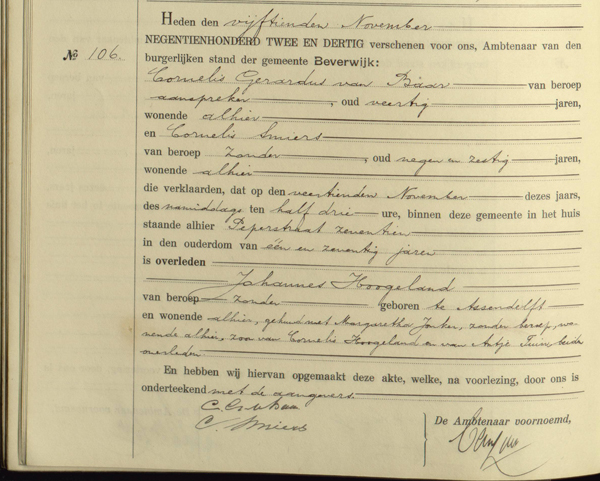 Heden den vijftienden November
№ 106.
NEGENTIENHONDERD TWEE EN DERTIG verschenen voor ons, Ambtenaar van den
burgerlijken stand der gemeente Beverwijk:
Cornelis Gerardus van Baar van beroep
aanspreker, oud veertig jaren,
wonende alhier
en Cornelis Smiers
van beroep zonder, oud negen en zestig jaren,
wonende alhier
die verklaarden, dat op den veertienden November dezes jaars,
des namiddags ten half drie ure, binnen deze gemeente in het huis
staande alhier Peperstraat zeventien
in den ouderdom van één en zeventig jaren
is overleden
Johannes Hoogeland
van beroep zonder geboren te Assendelft
en wonende alhier, gehuwd met Margaretha Jonker, zonder beroep, wo-
nende alhier, zoon van Cornelis Hoogeland en van Antje Tuin, beide
overleden
En hebben wij hiervan opgemaakt deze akte, welke, na voorlezing, door ons is
onderteekend met de aangevers.
C. G. v Baar
C. Smiers
De Ambtenaar voornoemd,